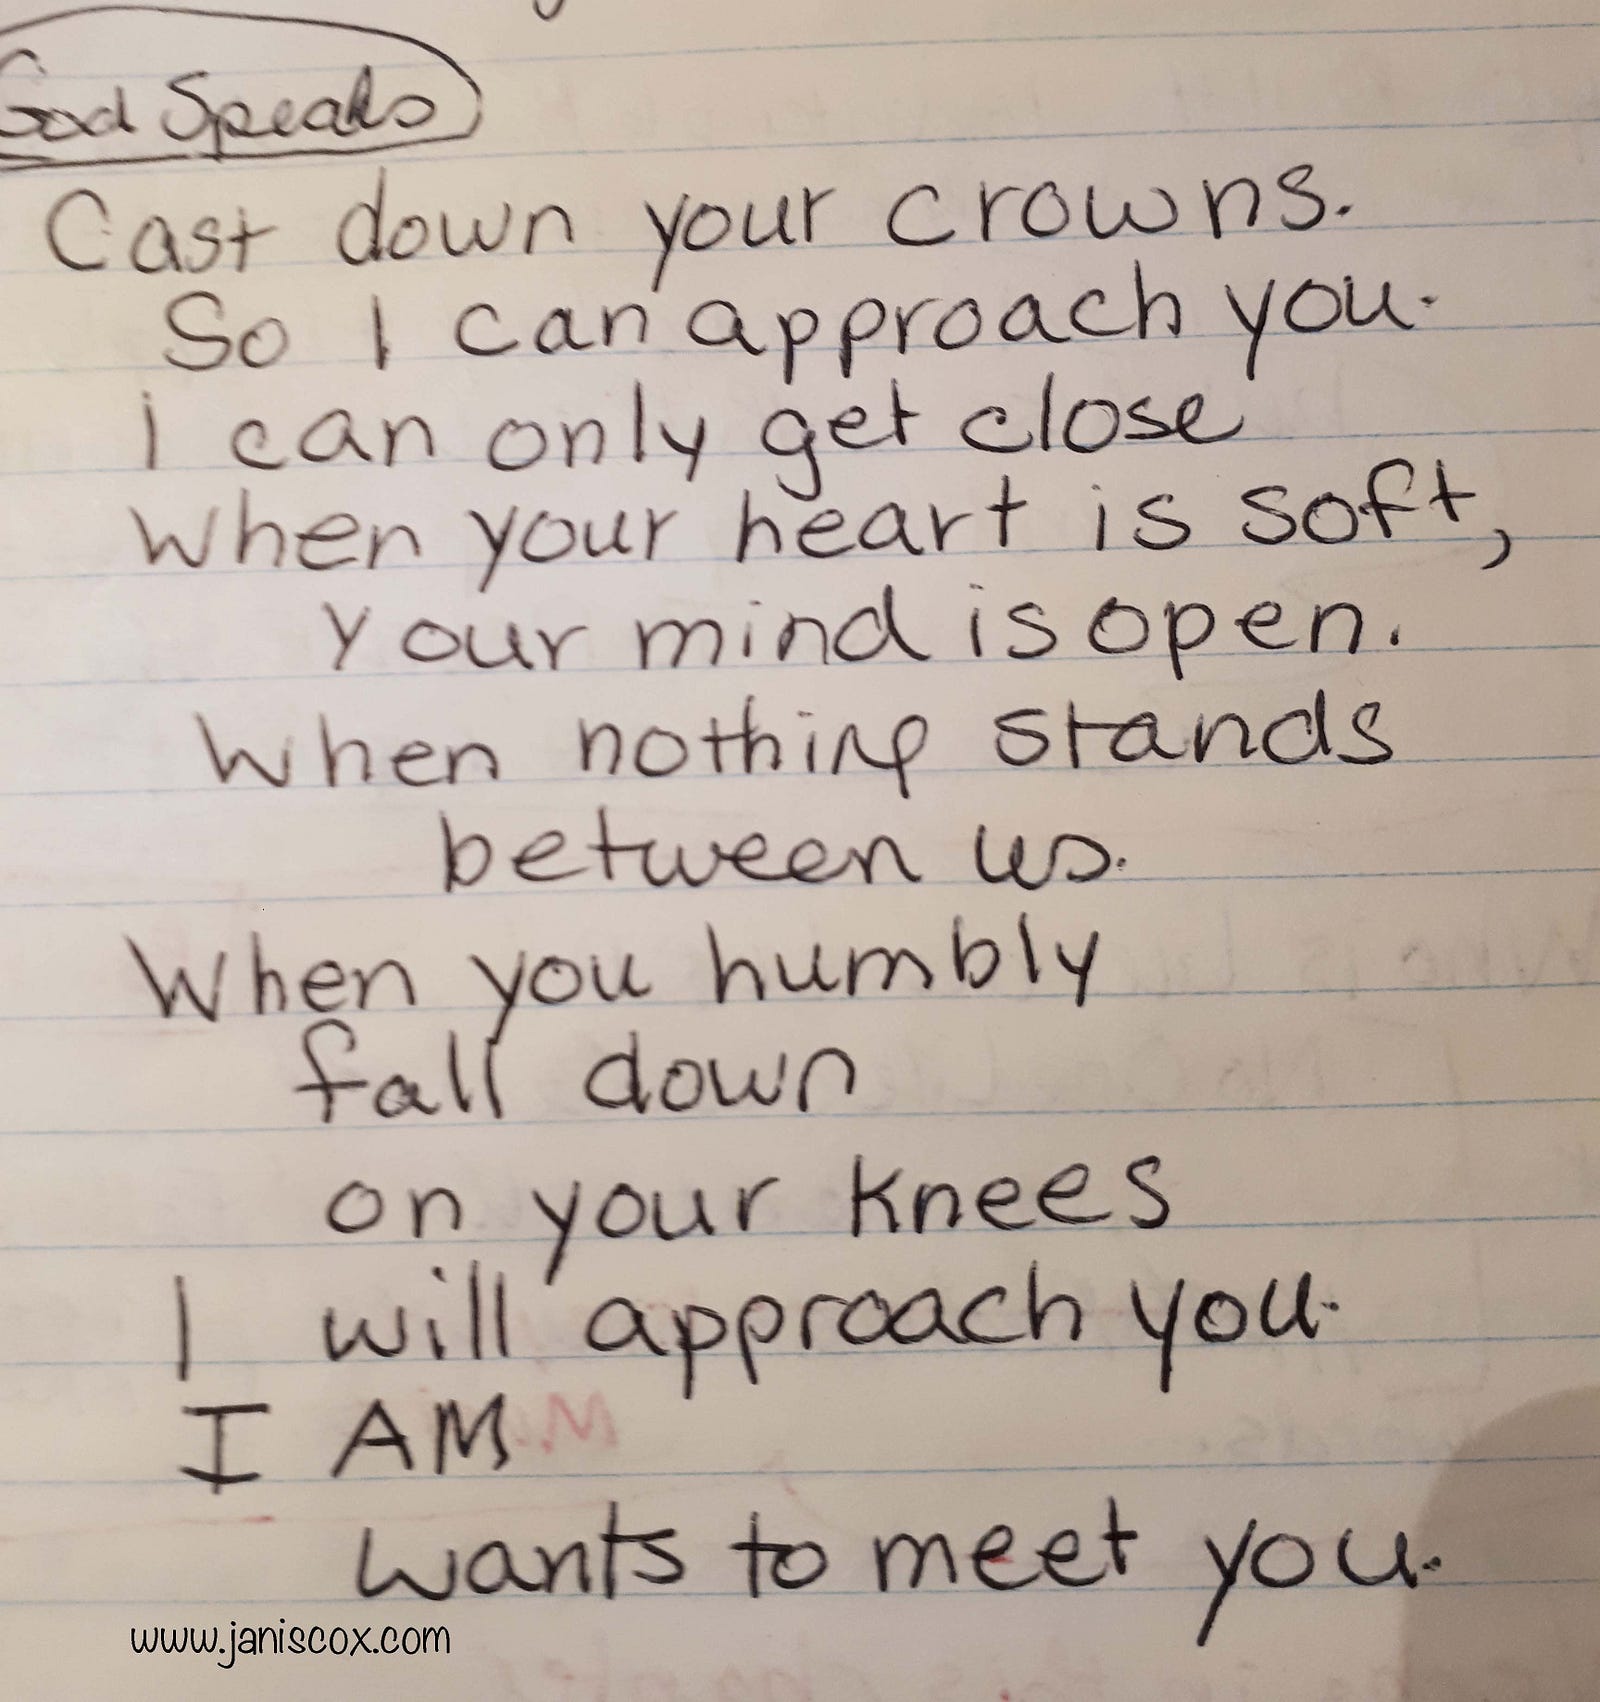 God Speaks
Cast down your crowns.
So I can approach you.
i can only get close
when your heart is soft,
your mind is open.
When nothing stands
between us.
When you humbly
fall down
on your knees
I will approach you.
I AM
wants to meet you.
www.janiscox.com